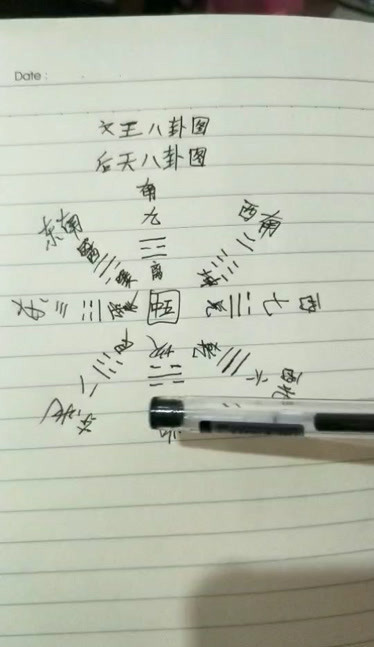 Date:
文王八卦图
后天八卦图
南
九
离
东南
四
巽
西南
二
坤
东
三
震
中五
兑
七
西
艮
坎
乾
六
西北
东北
北